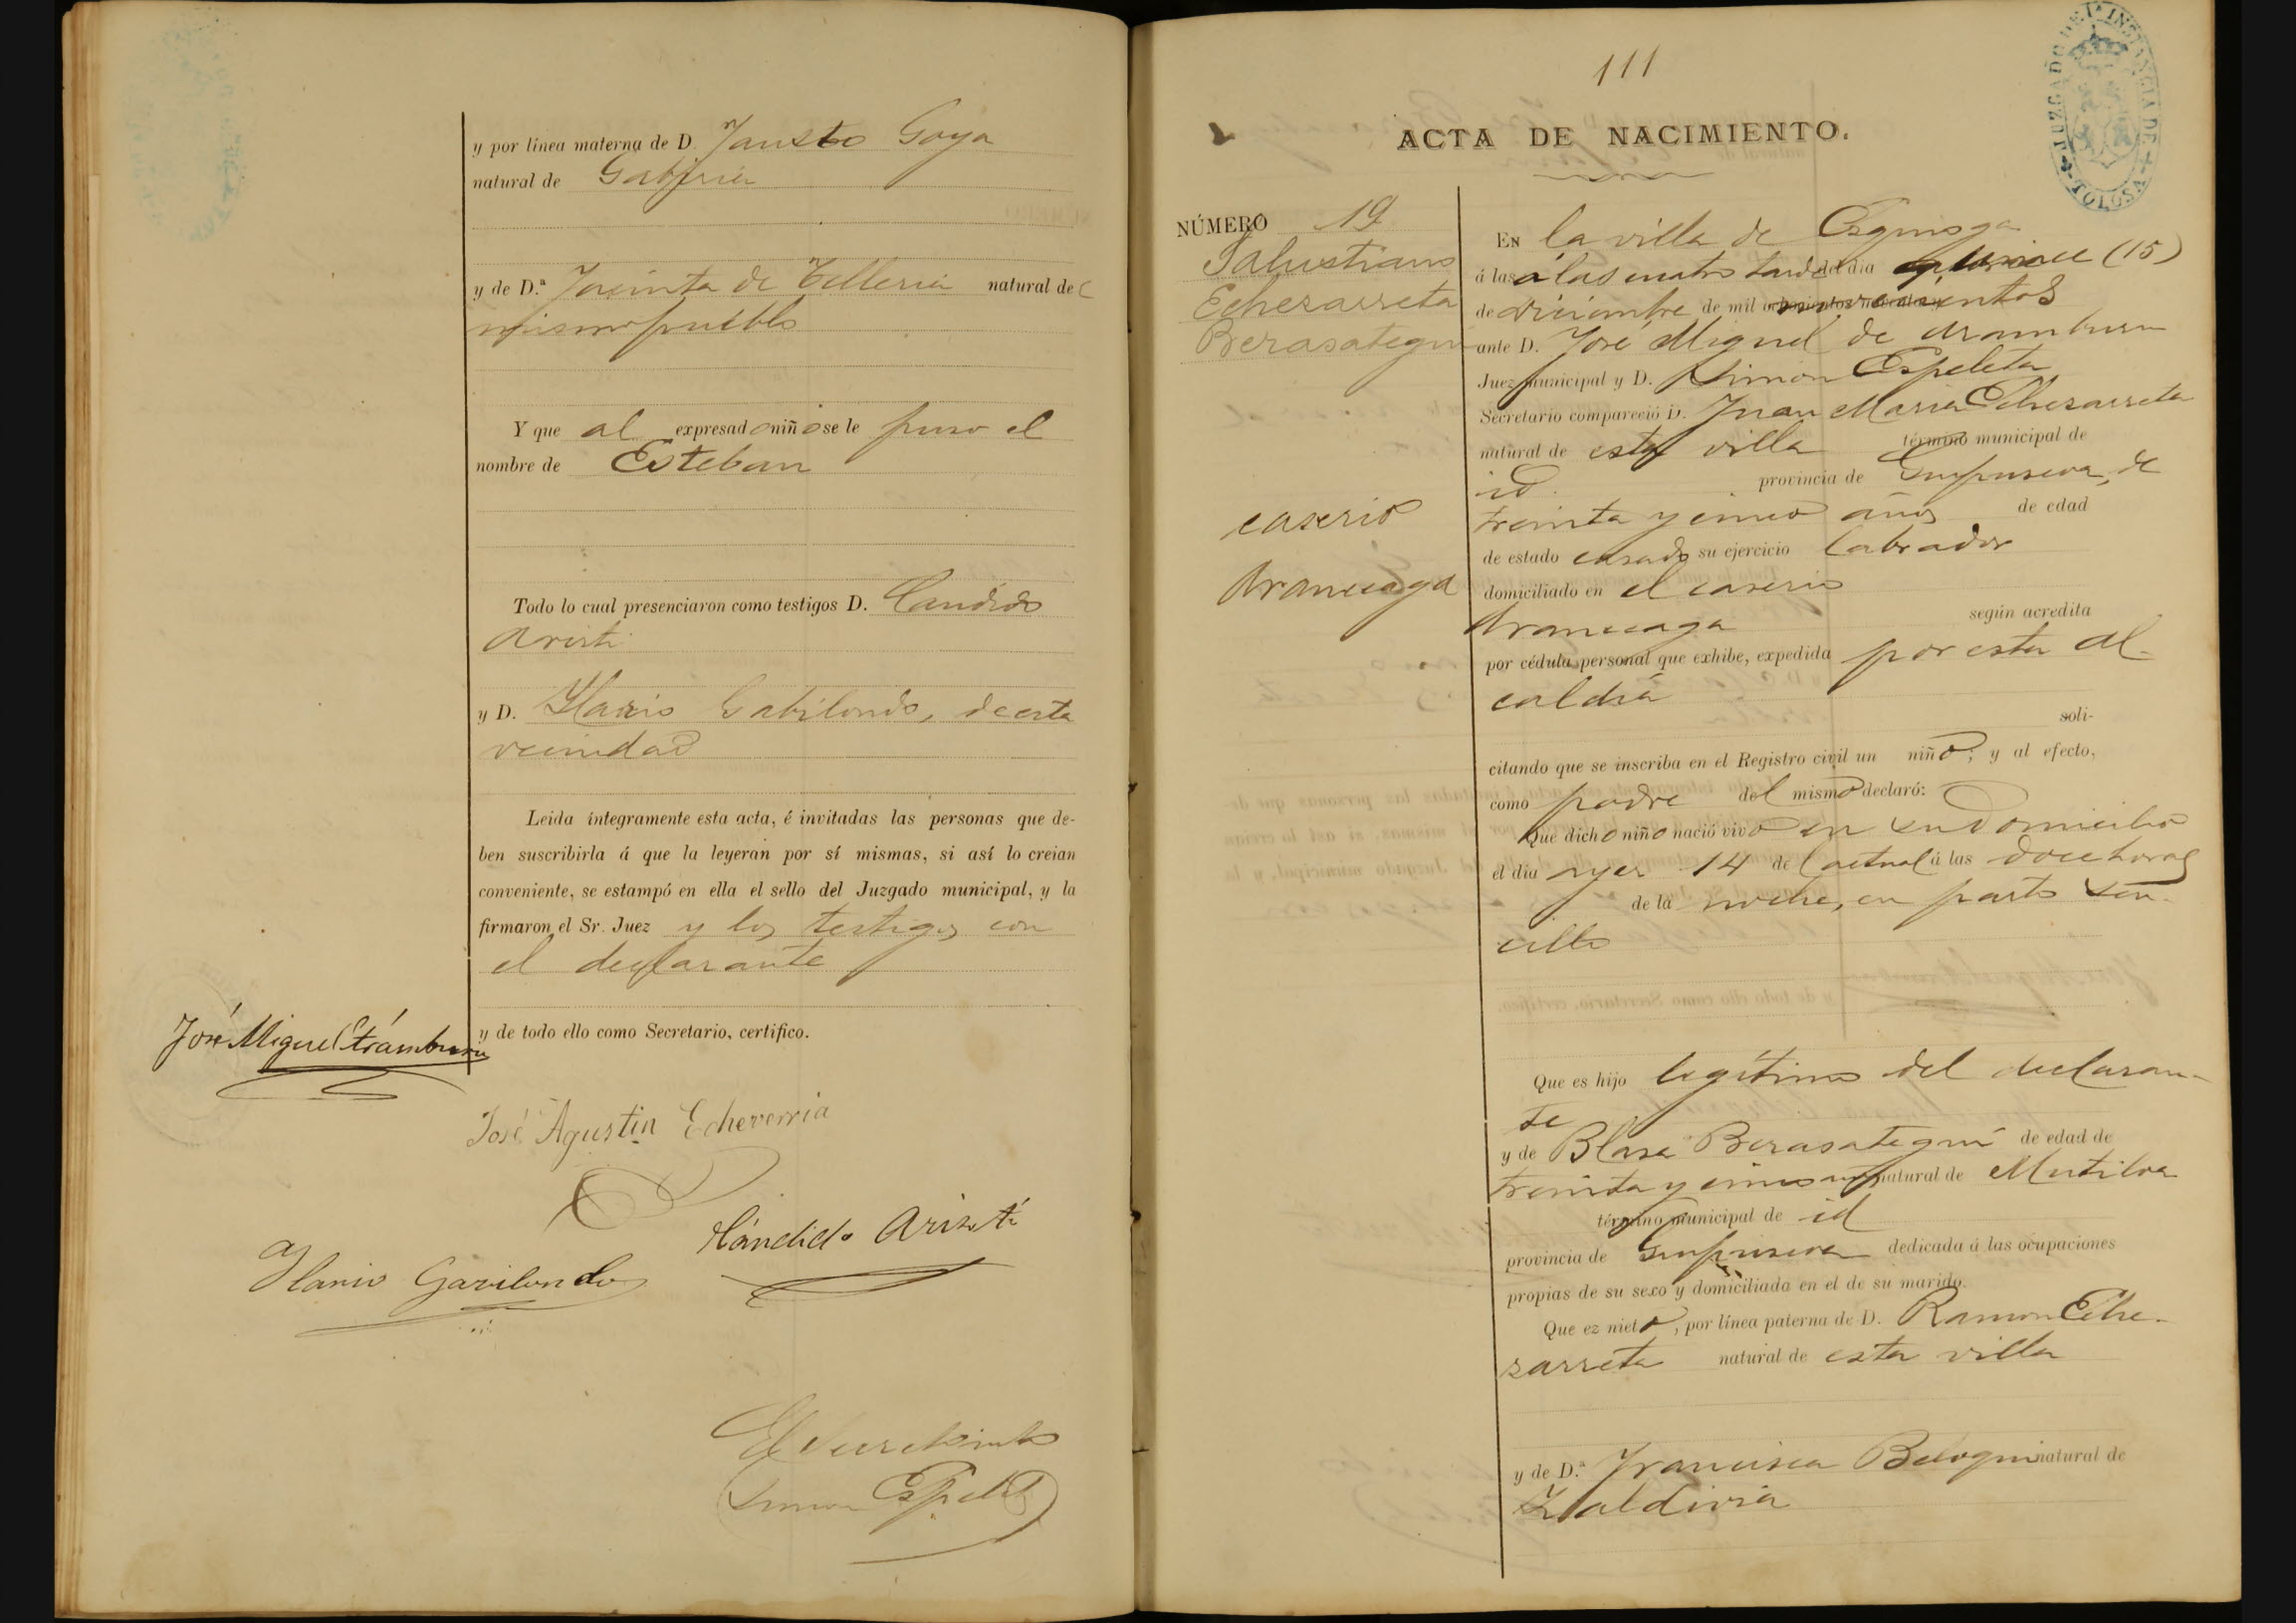 y por línea materna de D. Fausto Goya
natural de Gabiria
y de D.ª Jacinta de Telleria natural del
mismo pueblo
Y que al expresado niño se le puso el
nombre de Esteban
Todo lo cual presenciaron como testigos D. Candido
Aristi
y D. Ilario Gabilondo, de esta
vecindad
Leida íntegramente esta acta, é invitadas las personas que de-
ben suscribirla á que la leyeran por sí mismas, si así lo creian
conveniente, se estampó en ella el sello del Juzgado municipal, y la
firmaron el Sr. Juez y los testigos con
el declarante
y de todo ello como Secretario, certifico.
José Miguel Aramburu
José Agustin Echeverria
Cándido Aristi
Ilario Gavilondo
El Secretario
Simon Espeleta
111
JUZGADO DE 1ª INSTANCIA DE TOLOSA
ACTA DE NACIMIENTO.
NÚMERO 19
Salustiano
Echezarreta
Berasategui
caserio
Aranceaga
En la villa de Ezquioga
á las a las cuatro tarde del dia quince (15)
de diciembre de mil novecientos
ante D. José Miguel de Aramburu
Juez municipal y D. Simon Espeleta
Secretario compareció D. Juan Maria Echezarreta
natural de esta villa término municipal de
id. provincia de Guipuzcoa, de
treinta y cinco años de edad
de estado casado su ejercicio labrador
domiciliado en el caserio
Aranceaga según acredita
por cédula personal que exhibe, expedida por esta Al-
caldia
soli-
citando que se inscriba en el Registro civil un niño; y al efecto,
como padre del mismo declaró:
Que dicho niño nació vivo en su domicilio
el dia ayer 14 del actual á las doce horas
de la noche, en parto sen-
cillo
Que es hijo legítimo del declaran-
te
y de Blasa Berasategui de edad de
treinta y cinco años natural de Mutiloa
término municipal de id
provincia de Guipuzcoa dedicada á las ocupaciones
propias de su sexo y domiciliada en el de su marido.
Que ez nieto, por línea paterna de D. Ramon Eche-
zarreta natural de esta villa
y de D.ª Francisca Beloqui natural de
Zaldivia